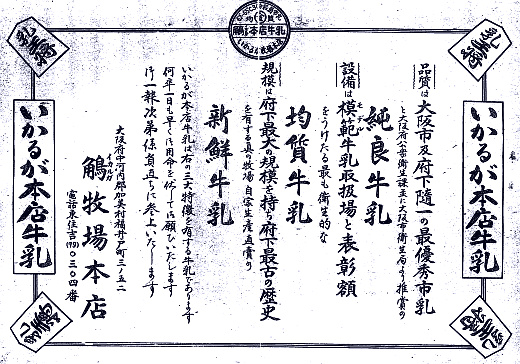 鵤本店牛乳
いかるが本店牛乳
品質は大阪市及府下随一の最優秀市乳
と大阪府公衆衛生課並に大阪市衛生局より推賞の
純良牛乳
設備は模範牛乳取扱場と表彰額
モデル
をうけたる最も衛生的な
均質牛乳
規模は府下最大の規模を持ち府下最古の歴史
を有する真の牧場自家生産直賣の
新鮮牛乳
いかるが本店牛乳は右の三大特徴を有する牛乳であります
何卒一日も早く御用命を伏して御願ひいたします
御一報次第係員直ちに参上いたします
大阪府中河内郡加美村
イカルガ
鵤牧場本店
電話東住吉(79)〇三〇四番
いかるが本店牛乳